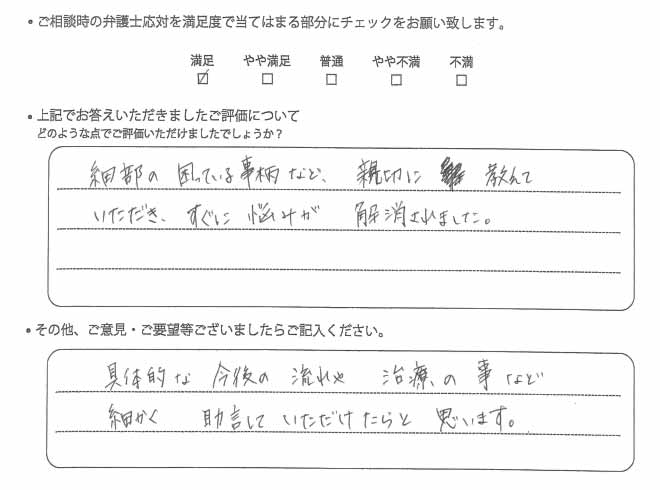 • ご相談時の弁護士応対を満足度で当てはまる部分にチェックをお願い致します。
満足 やや満足 普通 やや不満 不満
☑ □ □ □ □
• 上記でお答えいただきましたご評価について
どのような点でご評価いただけましたでしょうか？
細部の困っている事柄など、親切に 教えて
いただき、すぐに悩みが 解消されました。
• その他、ご意見・ご要望等ございましたらご記入ください。
具体的な 今後の 流れや 治療、の 事 など
細かく 助言して いただけたらと 思います。